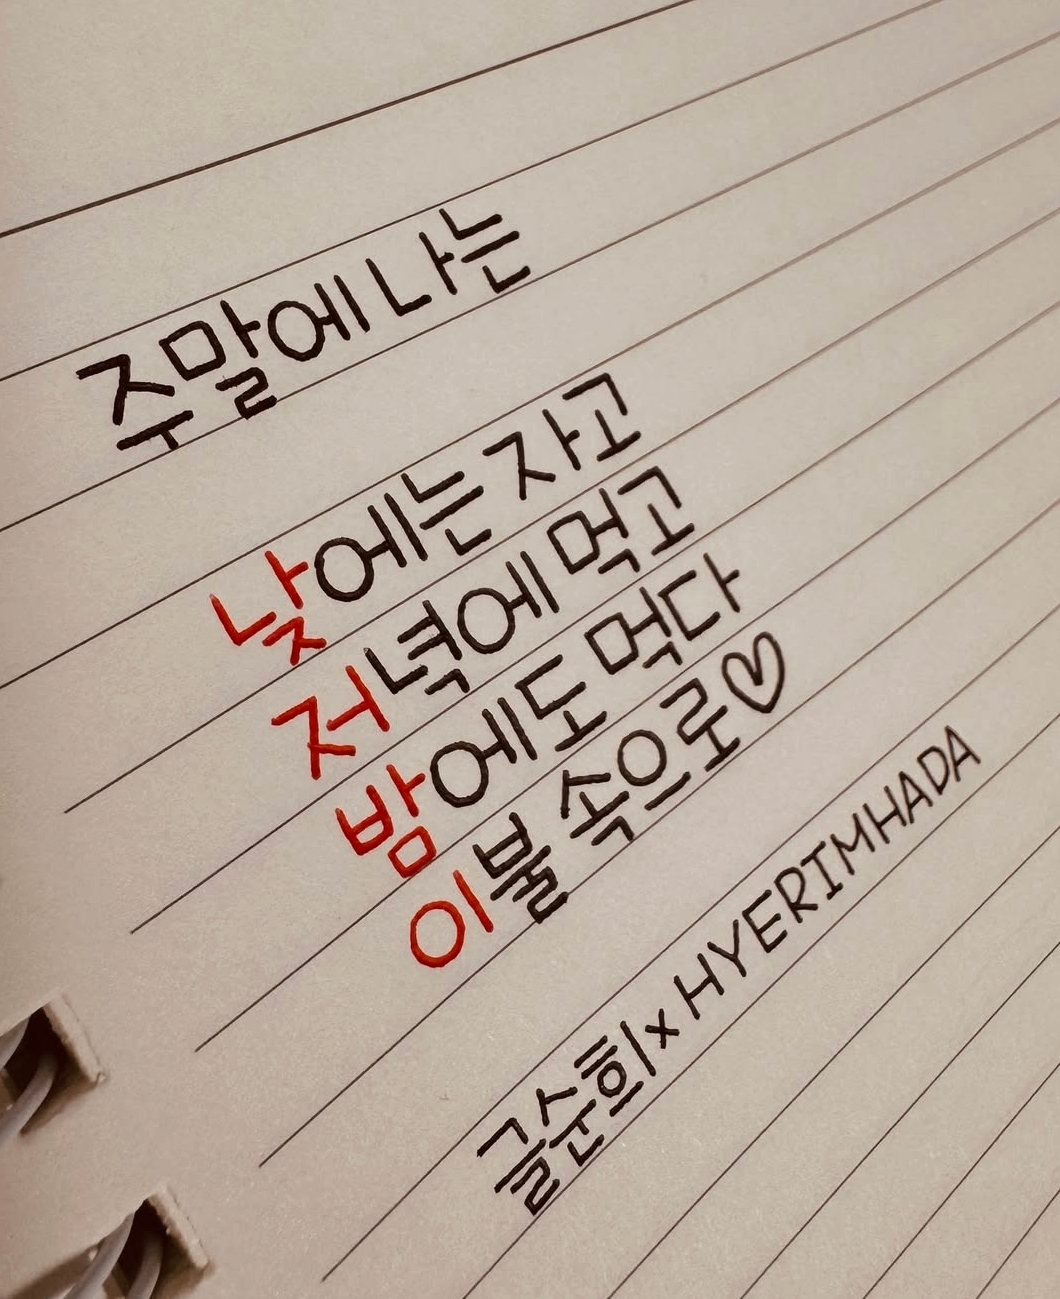 주말에 나는
낮에는 자고
저녁에 먹고
밤에도 먹다
이불 속으로♡
글순희 x HYERIMHADA